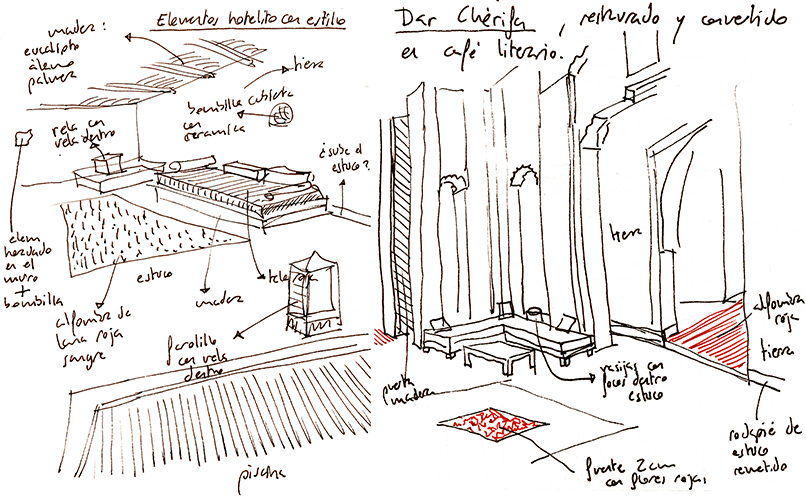 Elementos hotelito con estilo
madera:
eucalipto
álamo
palmera
tierra
bombilla cubierta
con
ceramica
tela con
vela dentro
¿sube el
estuco?
elem
horadado
en el
muro
+
bombilla
estuco
madera
tela roja
alfombra de
lana roja
sangre
farolillo
con vela
dentro
piscina
Dar Chérifa, restaurado y convertido
en café literario.
tierra
alfombra
roja
tierra
puerta
madera
vasijas con
focos dentro
estuco
rodapié de
estuco
remetido
fuente 2cm
con flores rojas